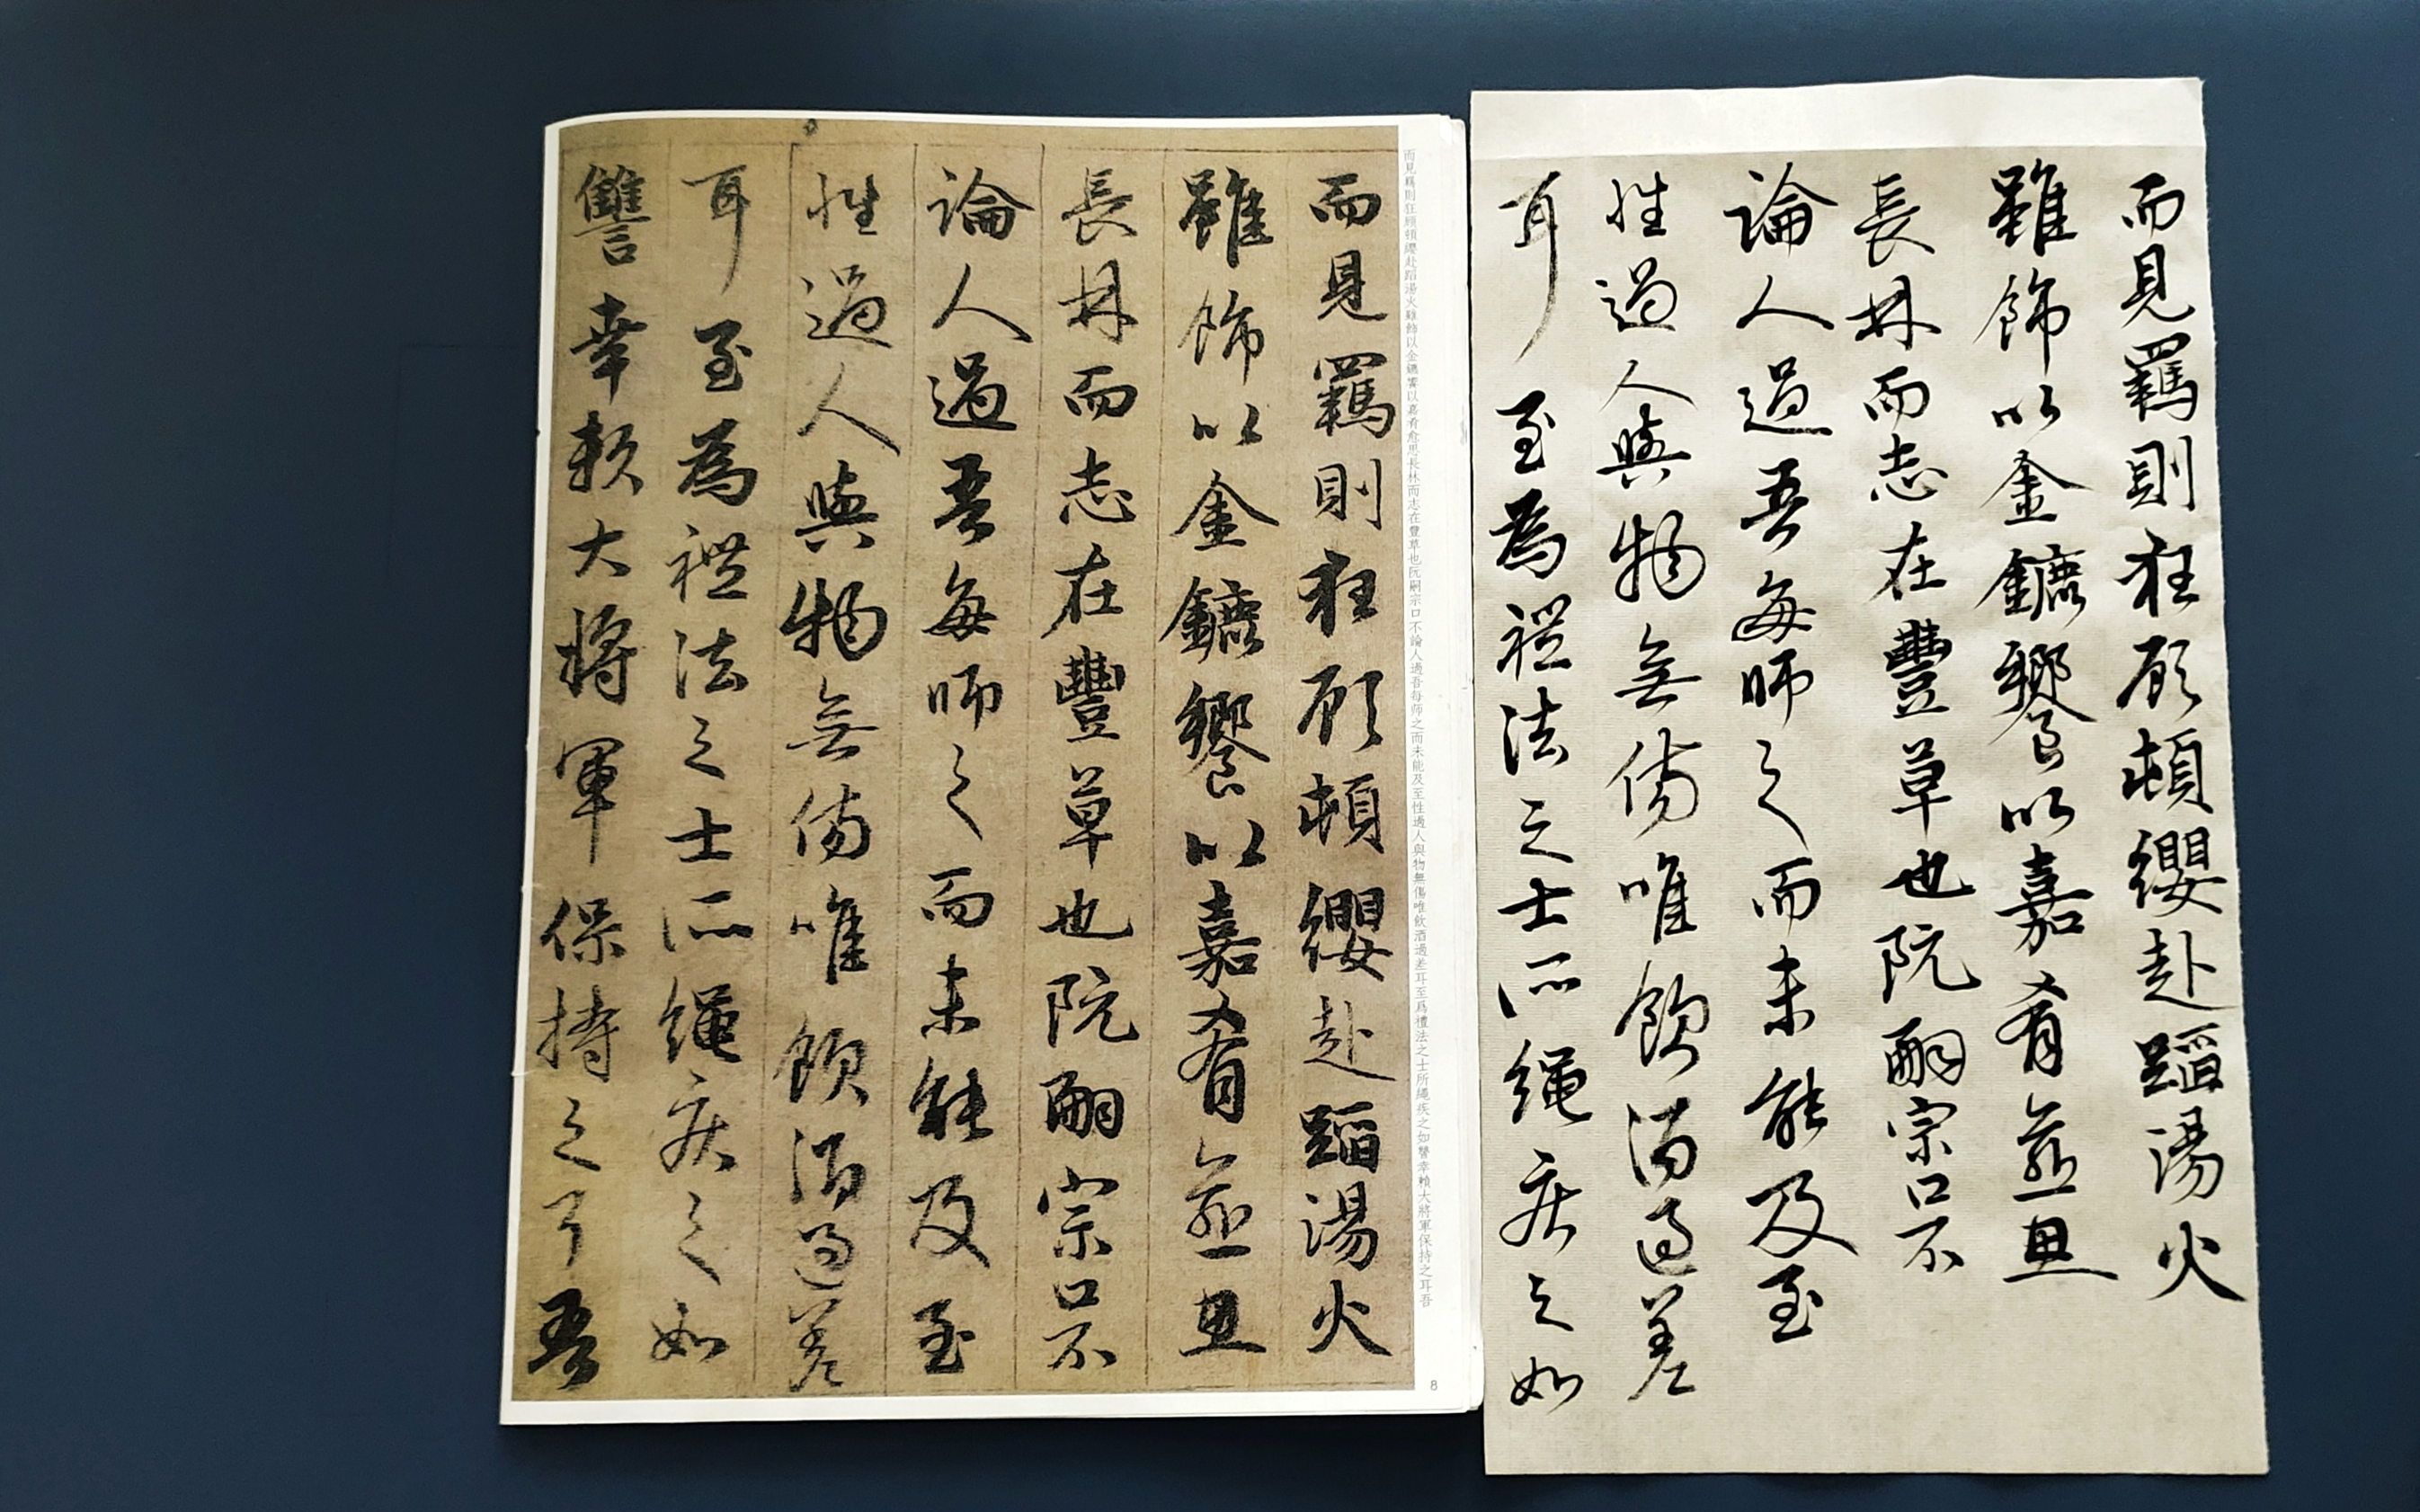 而見羈則狂顧頓纓赴蹈湯火
雖飾以金鑣饗以嘉肴愈思
長林而志在豐草也阮嗣宗口不
論人過吾每師之而未能及至
性過人與物無傷唯飲酒過差
耳至為禮法之士所繩疾之如
讐幸賴大將軍保持之耳吾
而見羈則狂顧頓纓赴蹈湯火雖飾以金鑣饗以嘉肴愈思長林而志在豐草也阮嗣宗口不論人過吾每师之而未能及至性過人與物無傷唯飲酒過差耳至爲禮法之士所繩疾之如讐幸賴大將軍保持之耳吾
8
而見羈則狂顧頓纓赴蹈湯火
雖飾以金鑣饗以嘉肴愈思
長林而志在豐草也阮嗣宗口不
論人過吾每師之而未能及至
性過人與物無傷唯飲酒過差
耳至為禮法之士所繩疾之如